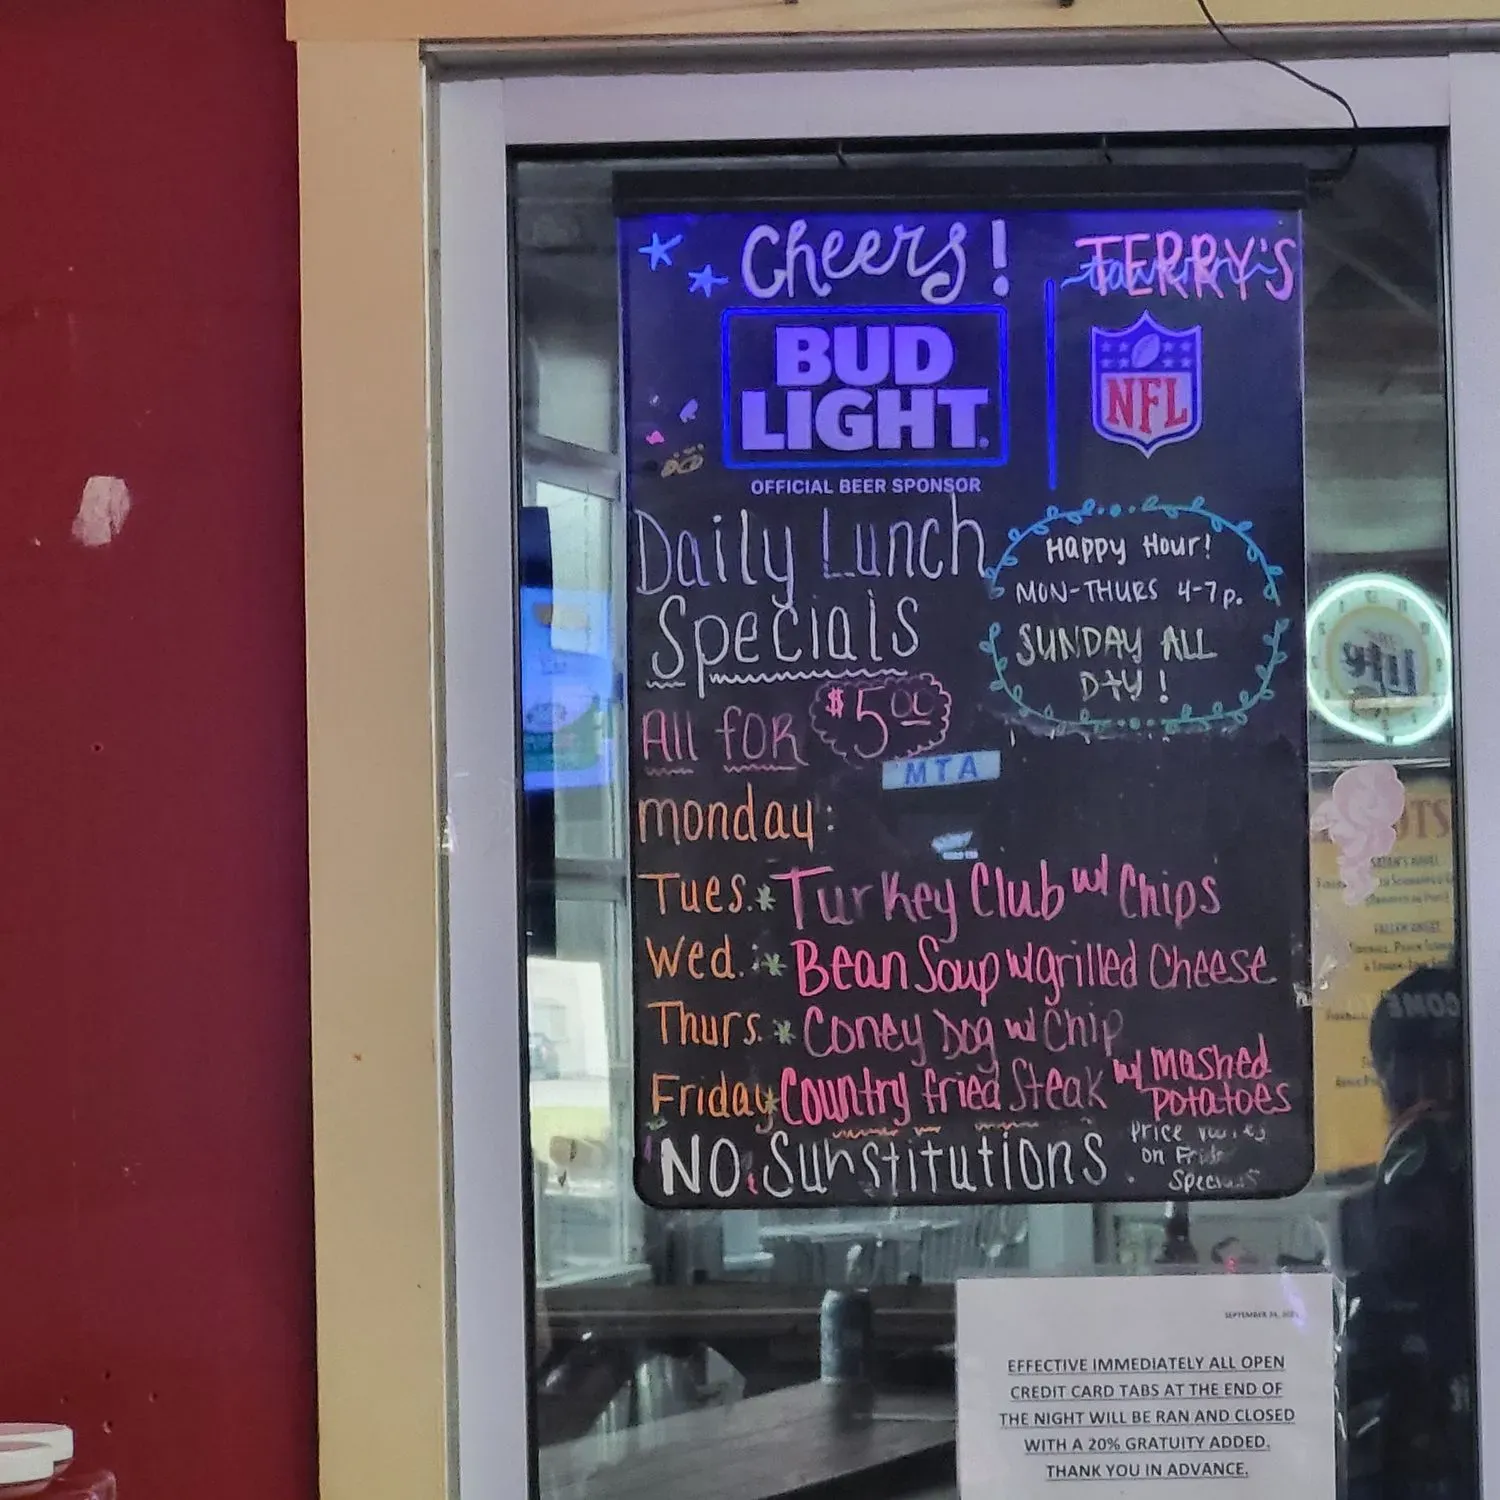 Cheers!
TERRY'S
BUD
LIGHT
OFFICIAL BEER SPONSOR
NFL
Daily Lunch
Specials
All for $5.00
Happy Hour!
MON-THURS 4-7p.
SUNDAY ALL
DAY!
MTA
monday:
Tues. * Turkey Club w/ Chips
Wed. : * Bean Soup w/ grilled Cheese
Thurs. * Coney Dog w/ Chip
Friday * Country fried Steak w/ mashed
potatoes
NO Sunstitutions
Price
on
SEPTEMBER
EFFECTIVE IMMEDIATELY ALL OPEN
CREDIT CARD TABS AT THE END OF
THE NIGHT WILL BE RAN AND CLOSED
WITH A 20% GRATUITY ADDED.
THANK YOU IN ADVANCE.